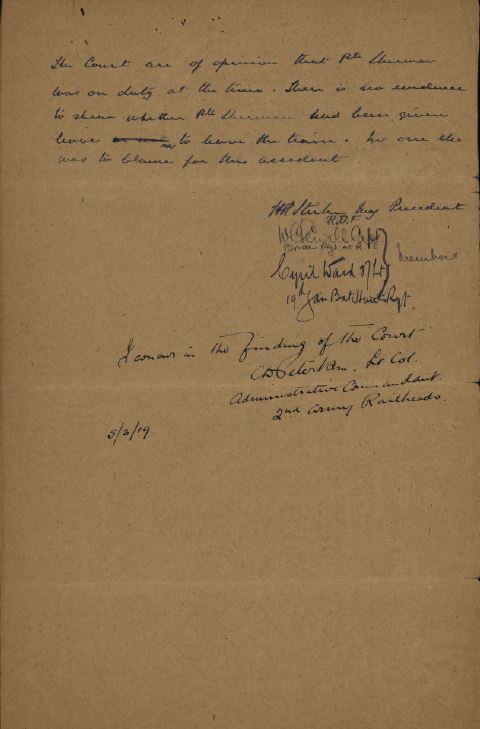 The Court are of opinion that Pte Sherman
was on duty at the time. There is no evidence
to shew whether Pte Sherman had been given
leave or not to leave the train. No one else
was to blame for this accident
Maj President
R.D.F
Capt
Border Regt
Cyril Ward 2/Lt
Members
19th Bat Hants Regt.
I concur in the Finding of the Court
Lt Col.
Administrative Commandant.
2nd Army Railheads.
5/3/19